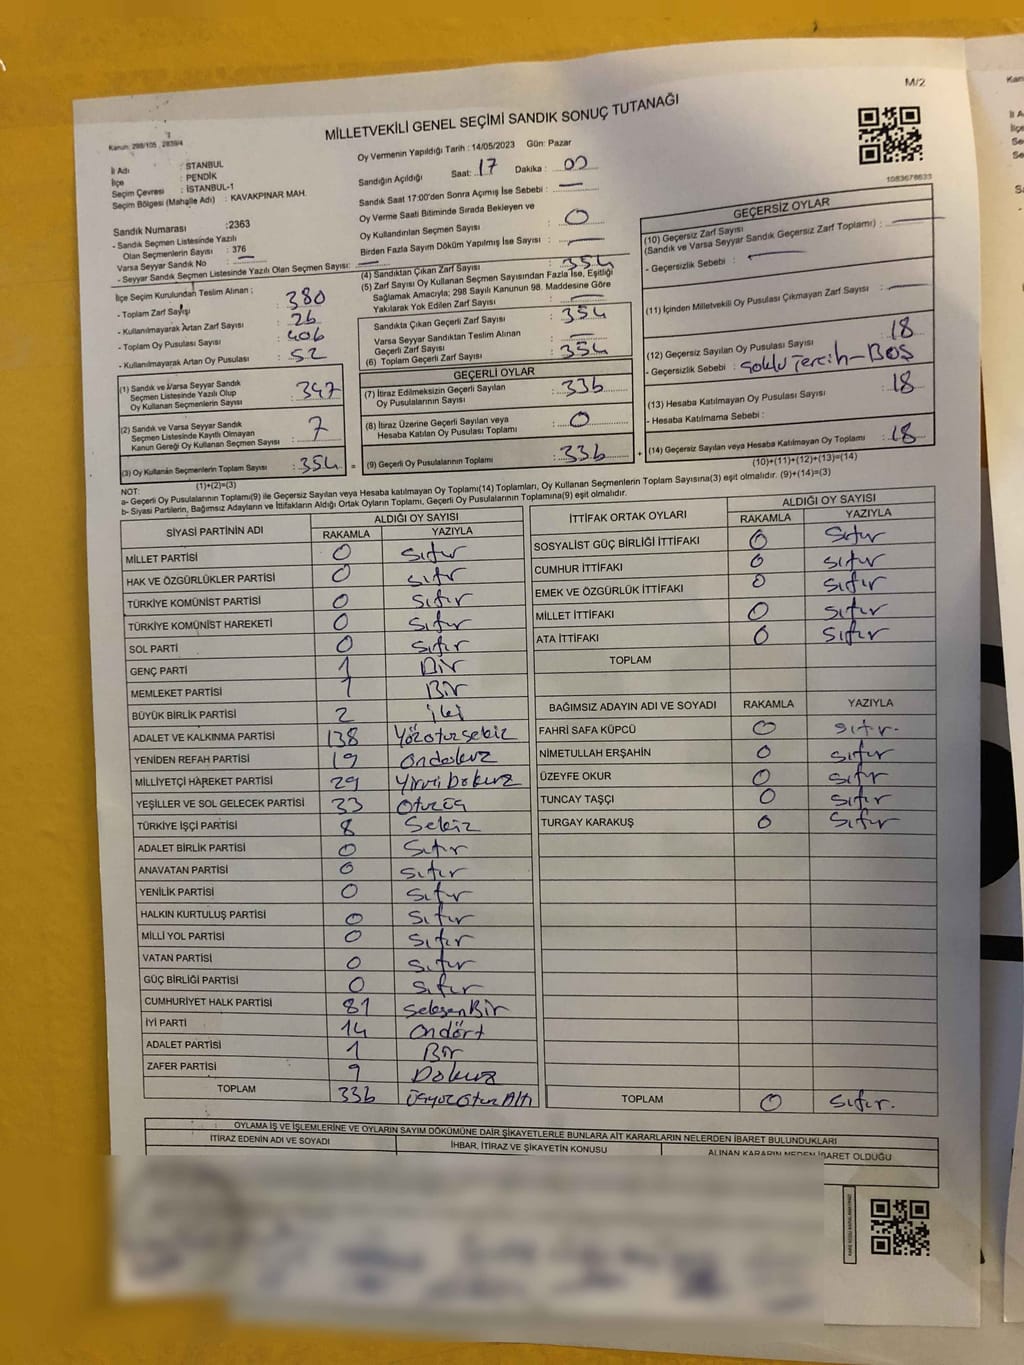 M/2
MİLLETVEKİLİ GENEL SEÇİMİ SANDIK SONUÇ TUTANAĞI
Kanun: 298/105 , 2839/4
1083678633
İl Adı : İSTANBUL
İlçe : PENDİK
Seçim Çevresi : İSTANBUL-1
Seçim Bölgesi (Mahalle Adı) : KAVAKPINAR MAH.
Sandık Numarası :2363
- Sandık Seçmen Listesinde Yazılı
Olan Seçmenlerin Sayısı : 376
Varsa Seyyar Sandık No : —
- Seyyar Sandık Seçmen Listesinde Yazılı Olan Seçmen Sayısı: —
İlçe Seçim Kurulundan Teslim Alınan ;
- Toplam Zarf Sayısı : 380
- Kullanılmayarak Artan Zarf Sayısı : 26
- Toplam Oy Pusulası Sayısı : 406
- Kullanılmayarak Artan Oy Pusulası : 52
(1) Sandık ve Varsa Seyyar Sandık
Seçmen Listesinde Yazılı Olup
Oy Kullanan Seçmenlerin Sayısı : 347
(2) Sandık ve Varsa Seyyar Sandık
Seçmen Listesinde Kayıtlı Olmayan
Kanun Gereği Oy Kullanan Seçmen Sayısı : 7
(3) Oy Kullanan Seçmenlerin Toplam Sayısı : 354 =
(1)+(2)=(3)
Oy Vermenin Yapıldığı Tarih : 14/05/2023 Gün: Pazar
Sandığın Açıldığı Saat: 17 Dakika : 00
Sandık Saat 17:00'den Sonra Açımış İse Sebebi : —
Oy Verme Saati Bitiminde Sırada Bekleyen ve
Oy Kullandırılan Seçmen Sayısı : 0
Birden Fazla Sayım Döküm Yapılmış İse Sayısı : —
(4) Sandıktan Çıkan Zarf Sayısı : 354
(5) Zarf Sayısı Oy Kullanan Seçmen Sayısından Fazla İse, Eşitliği
Sağlamak Amacıyla; 298 Sayılı Kanunun 98. Maddesine Göre
Yakılarak Yok Edilen Zarf Sayısı : —
Sandıkta Çıkan Geçerli Zarf Sayısı : 354
Varsa Seyyar Sandıktan Teslim Alınan
Geçerli Zarf Sayısı : —
(6) Toplam Geçerli Zarf Sayısı : 354
GEÇERLİ OYLAR
(7) İtiraz Edilmeksizin Geçerli Sayılan
Oy Pusulalarının Sayısı : 336
(8) İtiraz Üzerine Geçerli Sayılan veya
Hesaba Katılan Oy Pusulası Toplamı : 0
(9) Geçerli Oy Pusulalarının Toplamı : 336 +
GEÇERSİZ OYLAR
(10) Geçersiz Zarf Sayısı
(Sandık ve Varsa Seyyar Sandık Geçersiz Zarf Toplamı) : —
- Geçersizlik Sebebi : —
(11) İçinden Milletvekili Oy Pusulası Çıkmayan Zarf Sayısı : —
(12) Geçersiz Sayılan Oy Pusulası Sayısı : 18
- Geçersizlik Sebebi : Tercih-BOŞ
(13) Hesaba Katılmayan Oy Pusulası Sayısı : 18
- Hesaba Katılmama Sebebi :
(14) Geçersiz Sayılan veya Hesaba Katılmayan Oy Toplamı : 18
(10)+(11)+(12)+(13)=(14)
NOT:
a- Geçerli Oy Pusulalarının Toplamı(9) ile Geçersiz Sayılan veya Hesaba katılmayan Oy Toplamı(14) Toplamları, Oy Kullanan Seçmenlerin Toplam Sayısına(3) eşit olmalıdır. (9)+(14)=(3)
b- Siyasi Partilerin, Bağımsız Adayların ve İttifakların Aldığı Ortak Oyların Toplamı, Geçerli Oy Pusulalarının Toplamına(9) eşit olmalıdır.
SİYASİ PARTİNİN ADI ALDIĞI OY SAYISI
RAKAMLA YAZIYLA
MİLLET PARTİSİ 0 Sıfır
HAK VE ÖZGÜRLÜKLER PARTİSİ 0 Sıfır
TÜRKİYE KOMÜNİST PARTİSİ 0 Sıfır
TÜRKİYE KOMÜNİST HAREKETİ 0 Sıfır
SOL PARTİ 0 Sıfır
GENÇ PARTİ 1 Bir
MEMLEKET PARTİSİ 1 Bir
BÜYÜK BİRLİK PARTİSİ 2 iki
ADALET VE KALKINMA PARTİSİ 138 Yüzotuzsekiz
YENİDEN REFAH PARTİSİ 19 Ondokuz
MİLLİYETÇİ HAREKET PARTİSİ 29 Yirmi Dokuz
YEŞİLLER VE SOL GELECEK PARTİSİ 33 Otuzüç
TÜRKİYE İŞÇİ PARTİSİ 8 Sekiz
ADALET BİRLİK PARTİSİ 0 Sıfır
ANAVATAN PARTİSİ 0 Sıfır
YENİLİK PARTİSİ 0 Sıfır
HALKIN KURTULUŞ PARTİSİ 0 Sıfır
MİLLİ YOL PARTİSİ 0 Sıfır
VATAN PARTİSİ 0 Sıfır
GÜÇ BİRLİĞİ PARTİSİ 0 Sıfır
CUMHURİYET HALK PARTİSİ 81 SeksenBir
İYİ PARTİ 14 Ondört
ADALET PARTİSİ 1 Bir
ZAFER PARTİSİ 9 Dokuz
TOPLAM 336 ÜçyüzOtuzAltı
İTTİFAK ORTAK OYLARI ALDIĞI OY SAYISI
RAKAMLA YAZIYLA
SOSYALİST GÜÇ BİRLİĞİ İTTİFAKI 0 Sıfır
CUMHUR İTTİFAKI 0 Sıfır
EMEK VE ÖZGÜRLÜK İTTİFAKI 0 Sıfır
MİLLET İTTİFAKI 0 Sıfır
ATA İTTİFAKI 0 Sıfır
TOPLAM
BAĞIMSIZ ADAYIN ADI VE SOYADI RAKAMLA YAZIYLA
FAHRİ SAFA KÜPCÜ 0 Sıfır.
NİMETULLAH ERŞAHİN 0 Sıfır
ÜZEYFE OKUR 0 Sıfır
TUNCAY TAŞÇI 0 Sıfır
TURGAY KARAKUŞ 0 Sıfır
TOPLAM 0 Sıfır.
OYLAMA İŞ VE İŞLEMLERİNE VE OYLARIN SAYIM DÖKÜMÜNE DAİR ŞİKAYETLERLE BUNLARA AİT KARARLARIN NELERDEN İBARET BULUNDUKLARI
İTİRAZ EDENİN ADI VE SOYADI İHBAR, İTİRAZ VE ŞİKAYETİN KONUSU ALINAN KARARIN NEDEN İBARET OLDUĞU